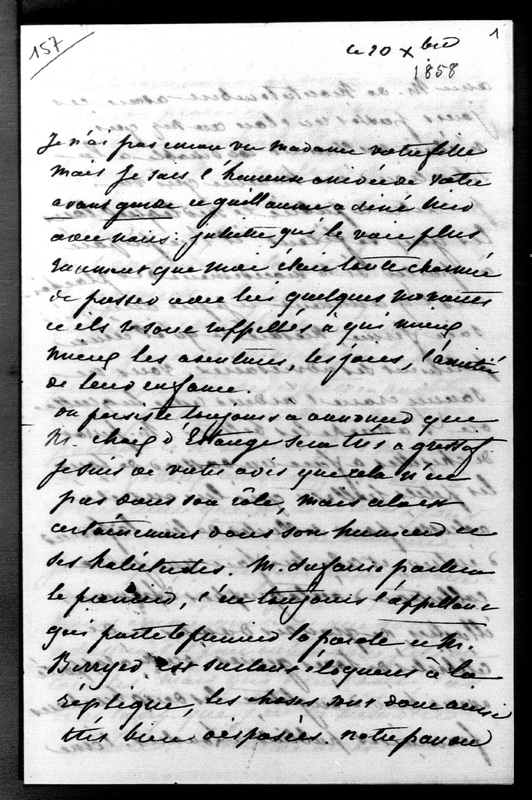 157
1
ce 20 Xbre
1858
Je n'ai pas encore vu madame votre fille
mais je sais l'heureuse arrivée de votre
avant garde et guillaume a diné hier
avec nous. juliette qui le voit plus
rarement que moi était toute charmée
de passer avec lui quelques moments
et ils se sont rappellés à qui mieux
mieux les aventures, les joies, l'amitié
de leur enfance.
on persiste toujours à annoncer que
M. chaix d'Estange sera très agressif.
Je suis de votre avis que cela n'est
pas dans son rôle, mais cela est
certainement dans son humeur et
ses habitudes. M. dufaure parlera
le premier, c'est toujours l'appellant
qui porte le premier la parole et M.
Berryer est surtout éloquent à la
réplique, les choses sont donc ainsi
très bien disposées. notre pauvre